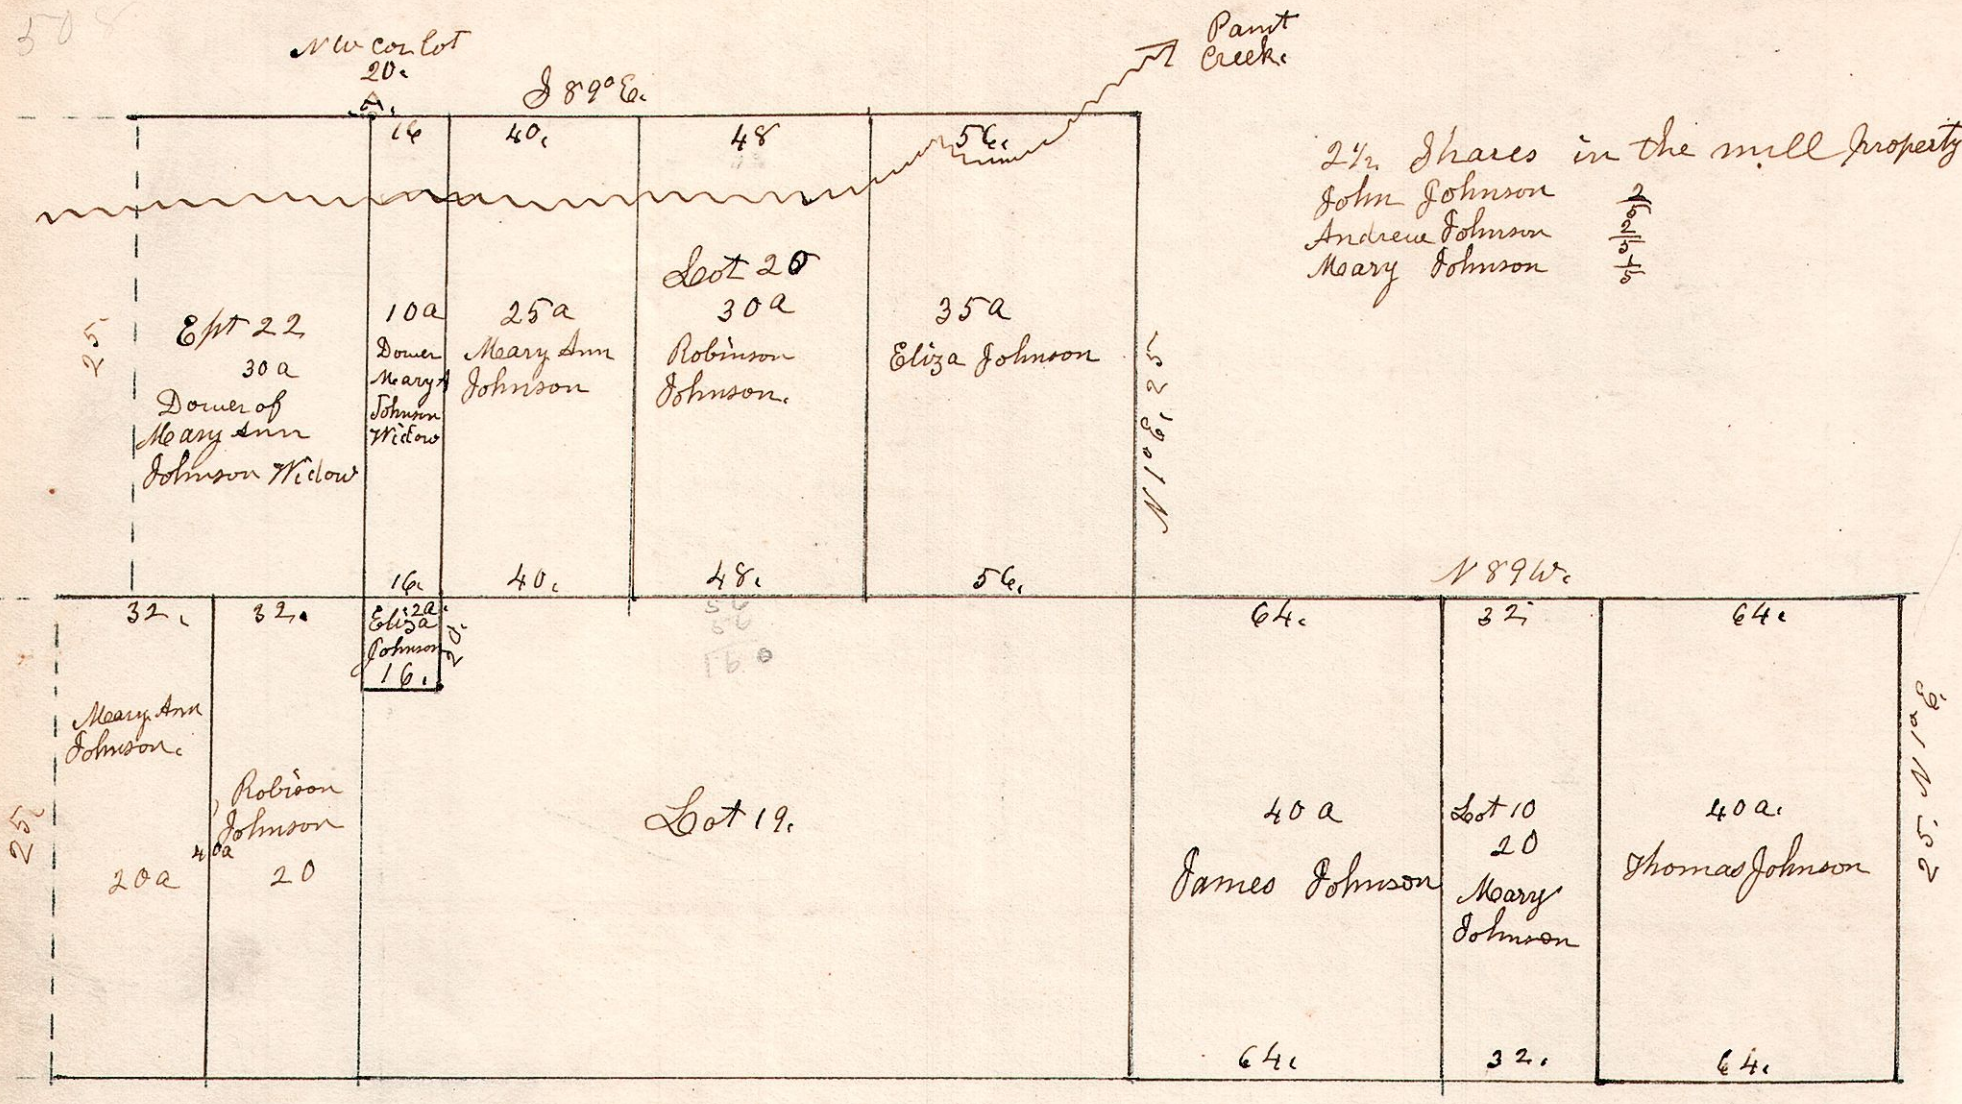 508
N W cor lot
20.
S 89° E.
Paint
Creek.
16
40.
48
56.
2 1/2 Shares in the mill property
John Johnson
Andrew Johnson
Mary Johnson
Lot 20
Ept 22
30 a
Dower of
Mary Ann
Johnson Widow
25
10 a
Dower
Mary A
Johnson
Widow
25 a
Mary Ann
Johnson
30 a
Robinson
Johnson.
35 a
Eliza Johnson
N 1° E, 25
16.
40.
48.
56.
N 89 W.
32.
32.
2a.
Eliza
Johnson
16.
20.
56
56
160
64.
32
64.
Mary Ann
Johnson.
20 a
25
Robison
Johnson
40a
20
Lot 19.
40 a
James Johnson
Lot 10
20
Mary
Johnson
40 a.
Thomas Johnson
25. N 1° E.
64.
32.
64.